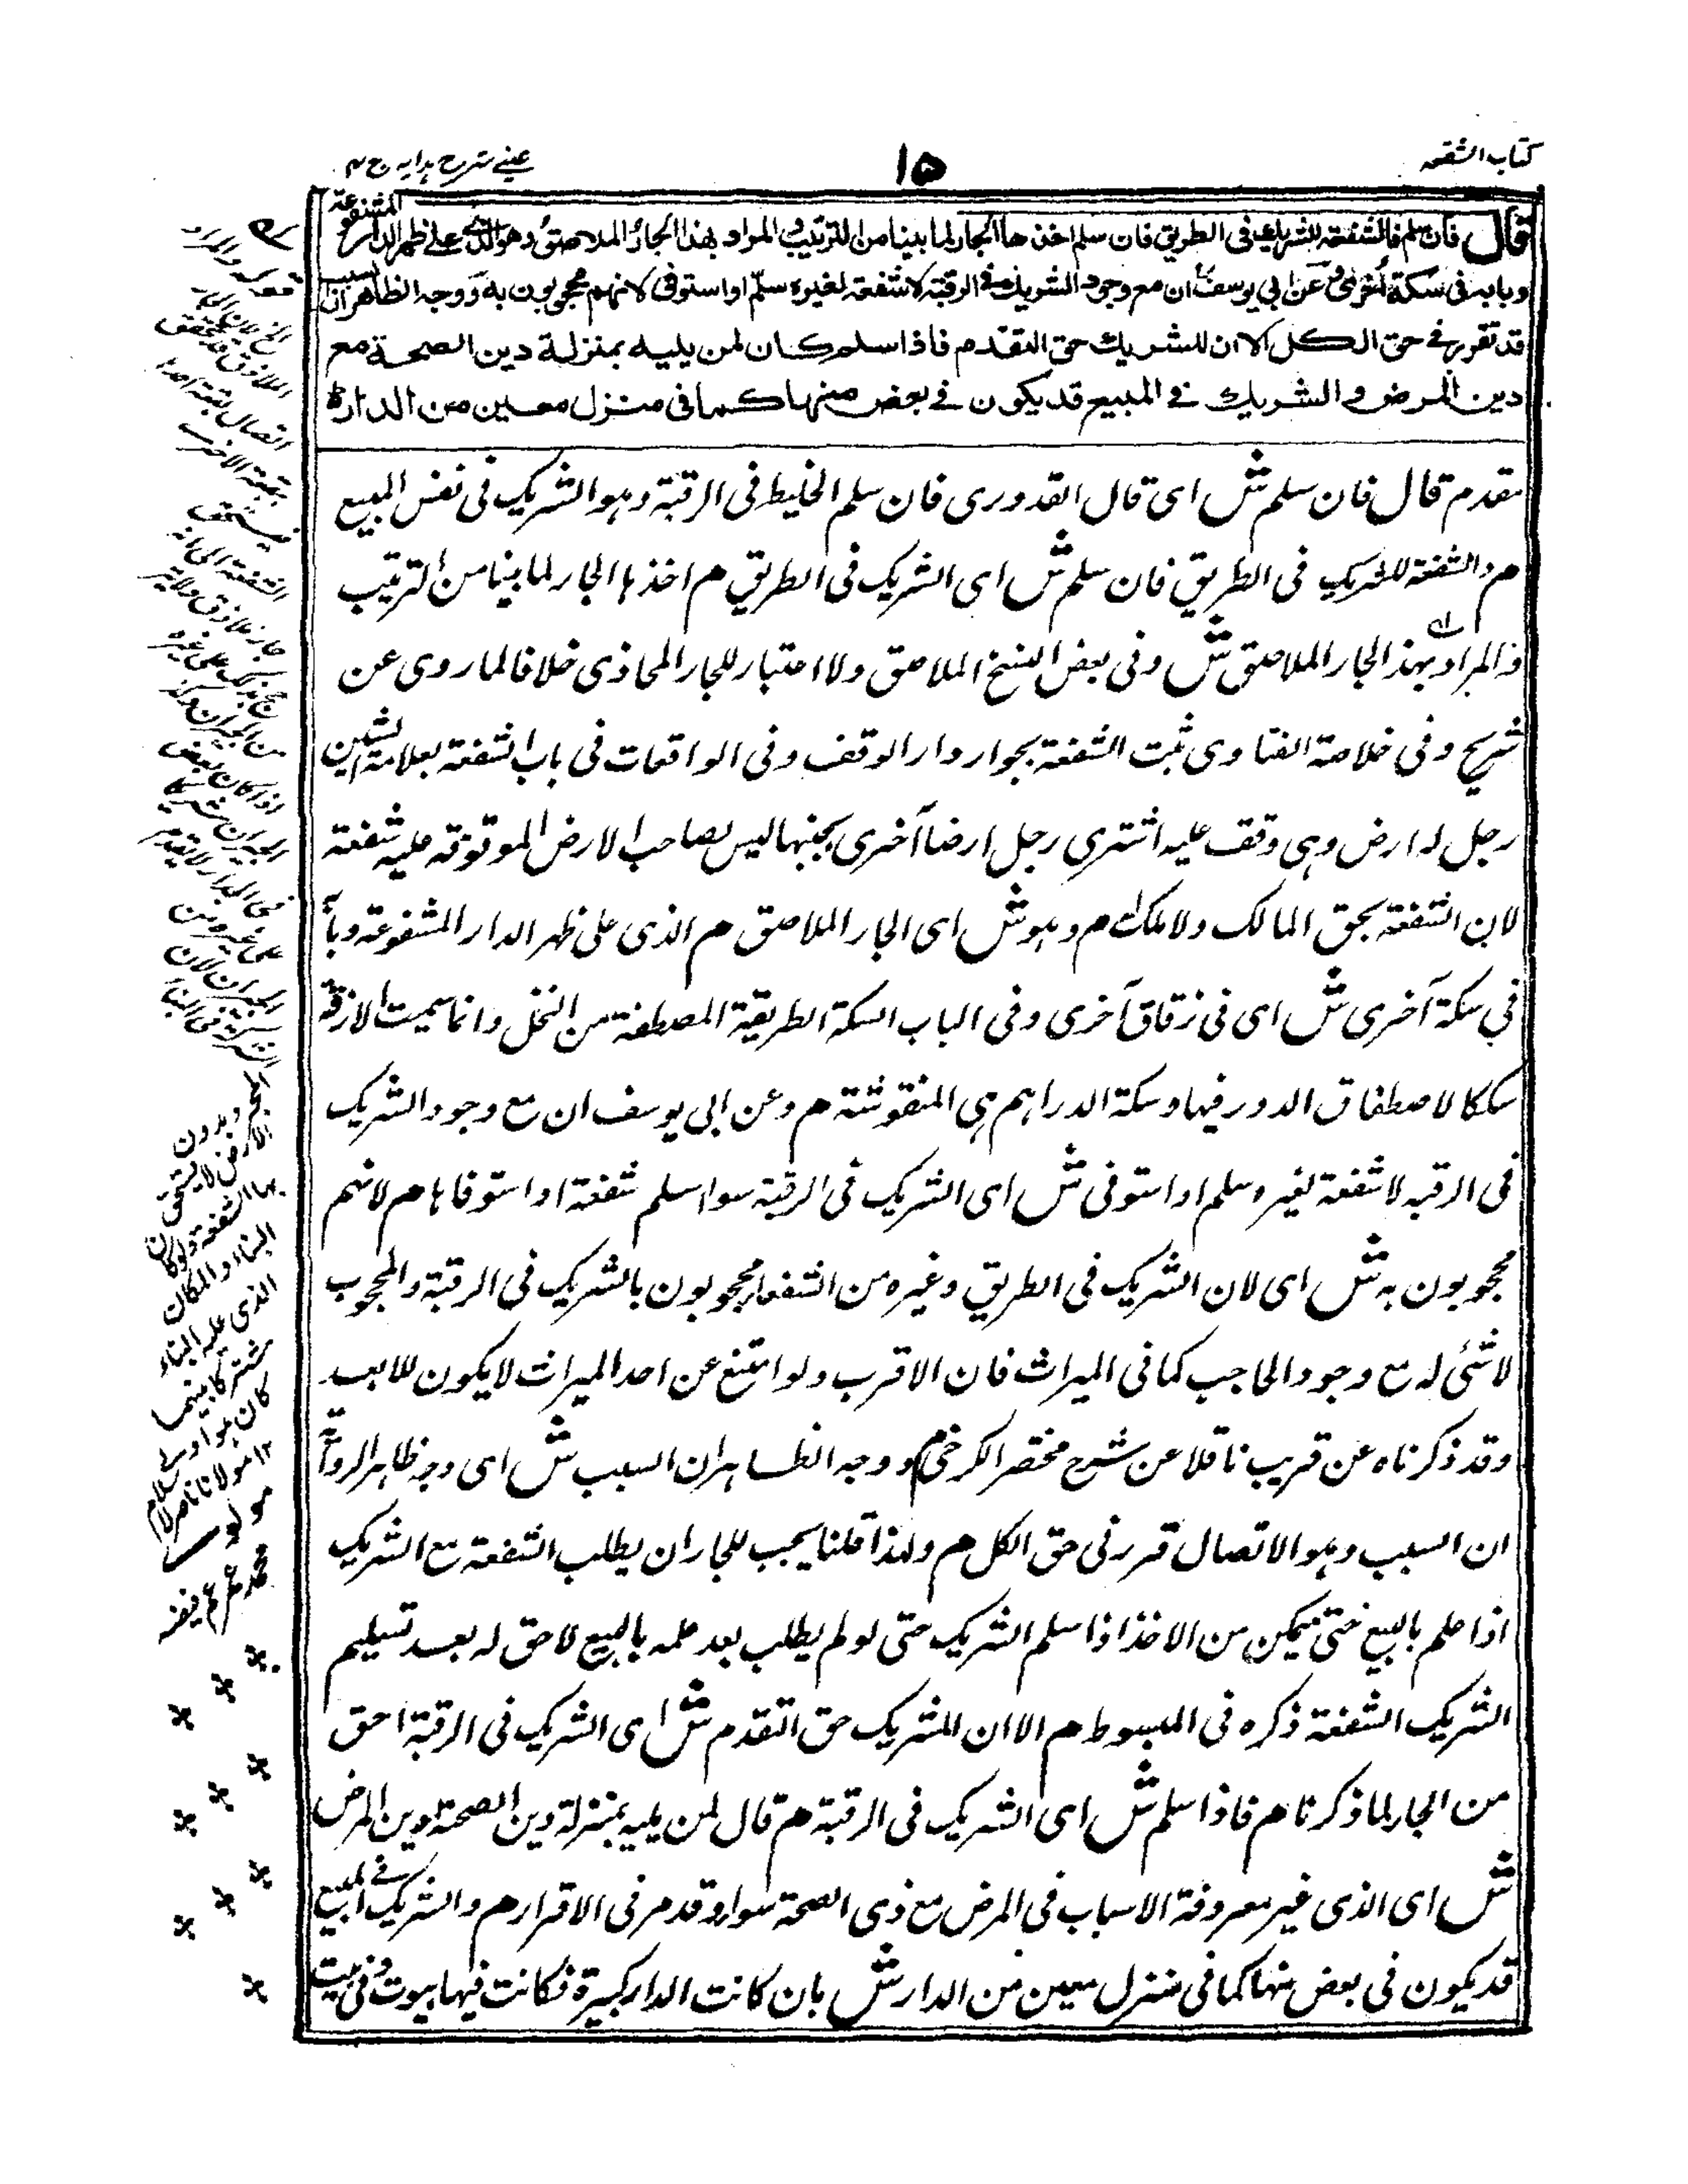 كتاب الشفعہ
١٥
عینی شرح ہدایہ ج ٣
قال فان سلم فالشفعة للشريك فى الطريق فان سلم اخذها الجار لما بينا من الترتيب والمراد بهذا الجار الملاصق وهو الذى على ظهر الدار المشفوعة
وبابه فى سكة اخرى وعن ابي يوسف ان مع وجود الشريك فى الرقبة لا شفعة لغيره سلم او استوفى لانهم محجوبون به ووجه الظاهر ان السبب
قد تقرر فى حق الكل الا ان للشريك حق التقدم فاذا سلم كان لمن يليه بمنزلة دين الصحة مع
دين المرض والشريك فى المبيع قد يكون فى بعض منها كما فى منزل معين من الدار
تقدم قال فان سلم ش اى قال القدورى فان سلم الخليط فى الرقبة وهو الشريك فى نفس المبيع
م فالشفعة للشريك فى الطريق فان سلم ش اى الشريك فى الطريق م اخذها الجار لما بينا من الترتيب
والمراد بهذا الجار الملاصق ش وفى بعض النسخ الملاصق ولا اعتبار للجار المحاذى خلافا لما روى عن
شريح وفى خلاصة الفتاوى ثبت الشفعة بجوار دار الوقف وفى الواقعات فى باب الشفعة بعلامة الشين
رجل له ارض وهى وقف عليه اشترى رجل ارضا اخرى بجنبها ليس لصاحب الارض الموقوفة عليه شفعة
لان الشفعة بحق المالك ولا ملك م وهو ش اى الجار الملاصق م الذى على ظهر الدار المشفوعة وبابه
فى سكة اخرى ش اى فى زقاق اخرى وفى الباب السكة الطريقة المصطفة من النخل وانما سميت الازقة
سككا لاصطفاق الدور فيها وسكة الدراهم هى المنقوشة م وعن ابى يوسف ان مع وجود الشريك
فى الرقبه لا شفعة لغيره سلم او استوفى ش اى الشريك فى الرقبة سواء سلم شفعة او استوفاها م لانهم
محجوبون به ش اى لان الشريك فى الطريق وغيره من الشفعاء محجوبون بالشريك فى الرقبة والمحجوب
لا شئ له مع وجود الحاجب كما فى الميراث فان الاقرب ولو امتنع عن احد الميراث لا يكون للابعد
وقد ذكرناه عن قريب ناقلا عن شرح مختصر الكرخى م ووجه الظاهر ان السبب ش اى وجه ظاهر الرواية
ان السبب وهو الاتصال تقرر فى حق الكل م ولهذا قلنا يجب للجار ان يطلب الشفعة مع الشريك
اذا علم بالبيع حتى يتمكن من الاخذ اذا سلم الشريك حتى لو لم يطلب بعد علمه بالبيع لا حق له بعد تسليم
الشريك الشفعة ذكره فى المبسوط م الا ان للشريك حق التقدم ش اى الشريك فى الرقبة احق
من الجار لما ذكرنا م فاذا سلم ش اى الشريك فى الرقبة م قال لمن يليه بمنزلة دين الصحة مع دين المرض
ش اى الذى غير معروفة الاسباب فى المرض مع ذى الصحة سواء وقد مر فى الاقرار م والشريك فى المبيع
قد يكون فى بعض منها كما فى منزل معين من الدار ش بان كانت الدار كبيرة فكانت فيها بيوت وفى بيت
اتصال بقعة احدا
الشفعة
من الجيران
الجيران لان
وبدون
الارض لا يستحق
بها الشفعة ولو كان
البناء والمكان
الذى عليه البناء
مشتركا بينهما
كان هو اولى
١٢ مولانا ناصر الاسلام
مولوى
محمد عمر